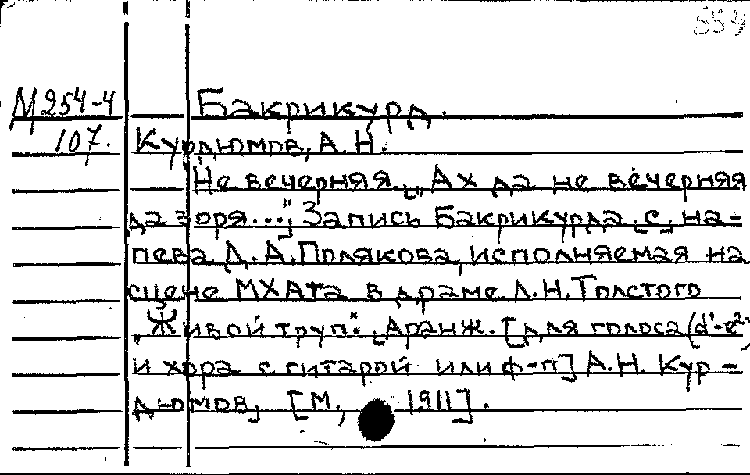 559
М254-4 Бакрикурд.
107. Курдюмов, А.Н.
Не вечерняя. „Ах да не вечерняя
да зоря...". Запись Бакрикурда [с] на-
пева Д.А. Полякова, исполняемая на
сцене МХАта в драме Л.Н. Толстого
„Живой труп". Аранж. [для голоса (d¹-e²)
и хора с гитарой или ф-п] А.Н. Кур-
дюмов, [М., 1911].